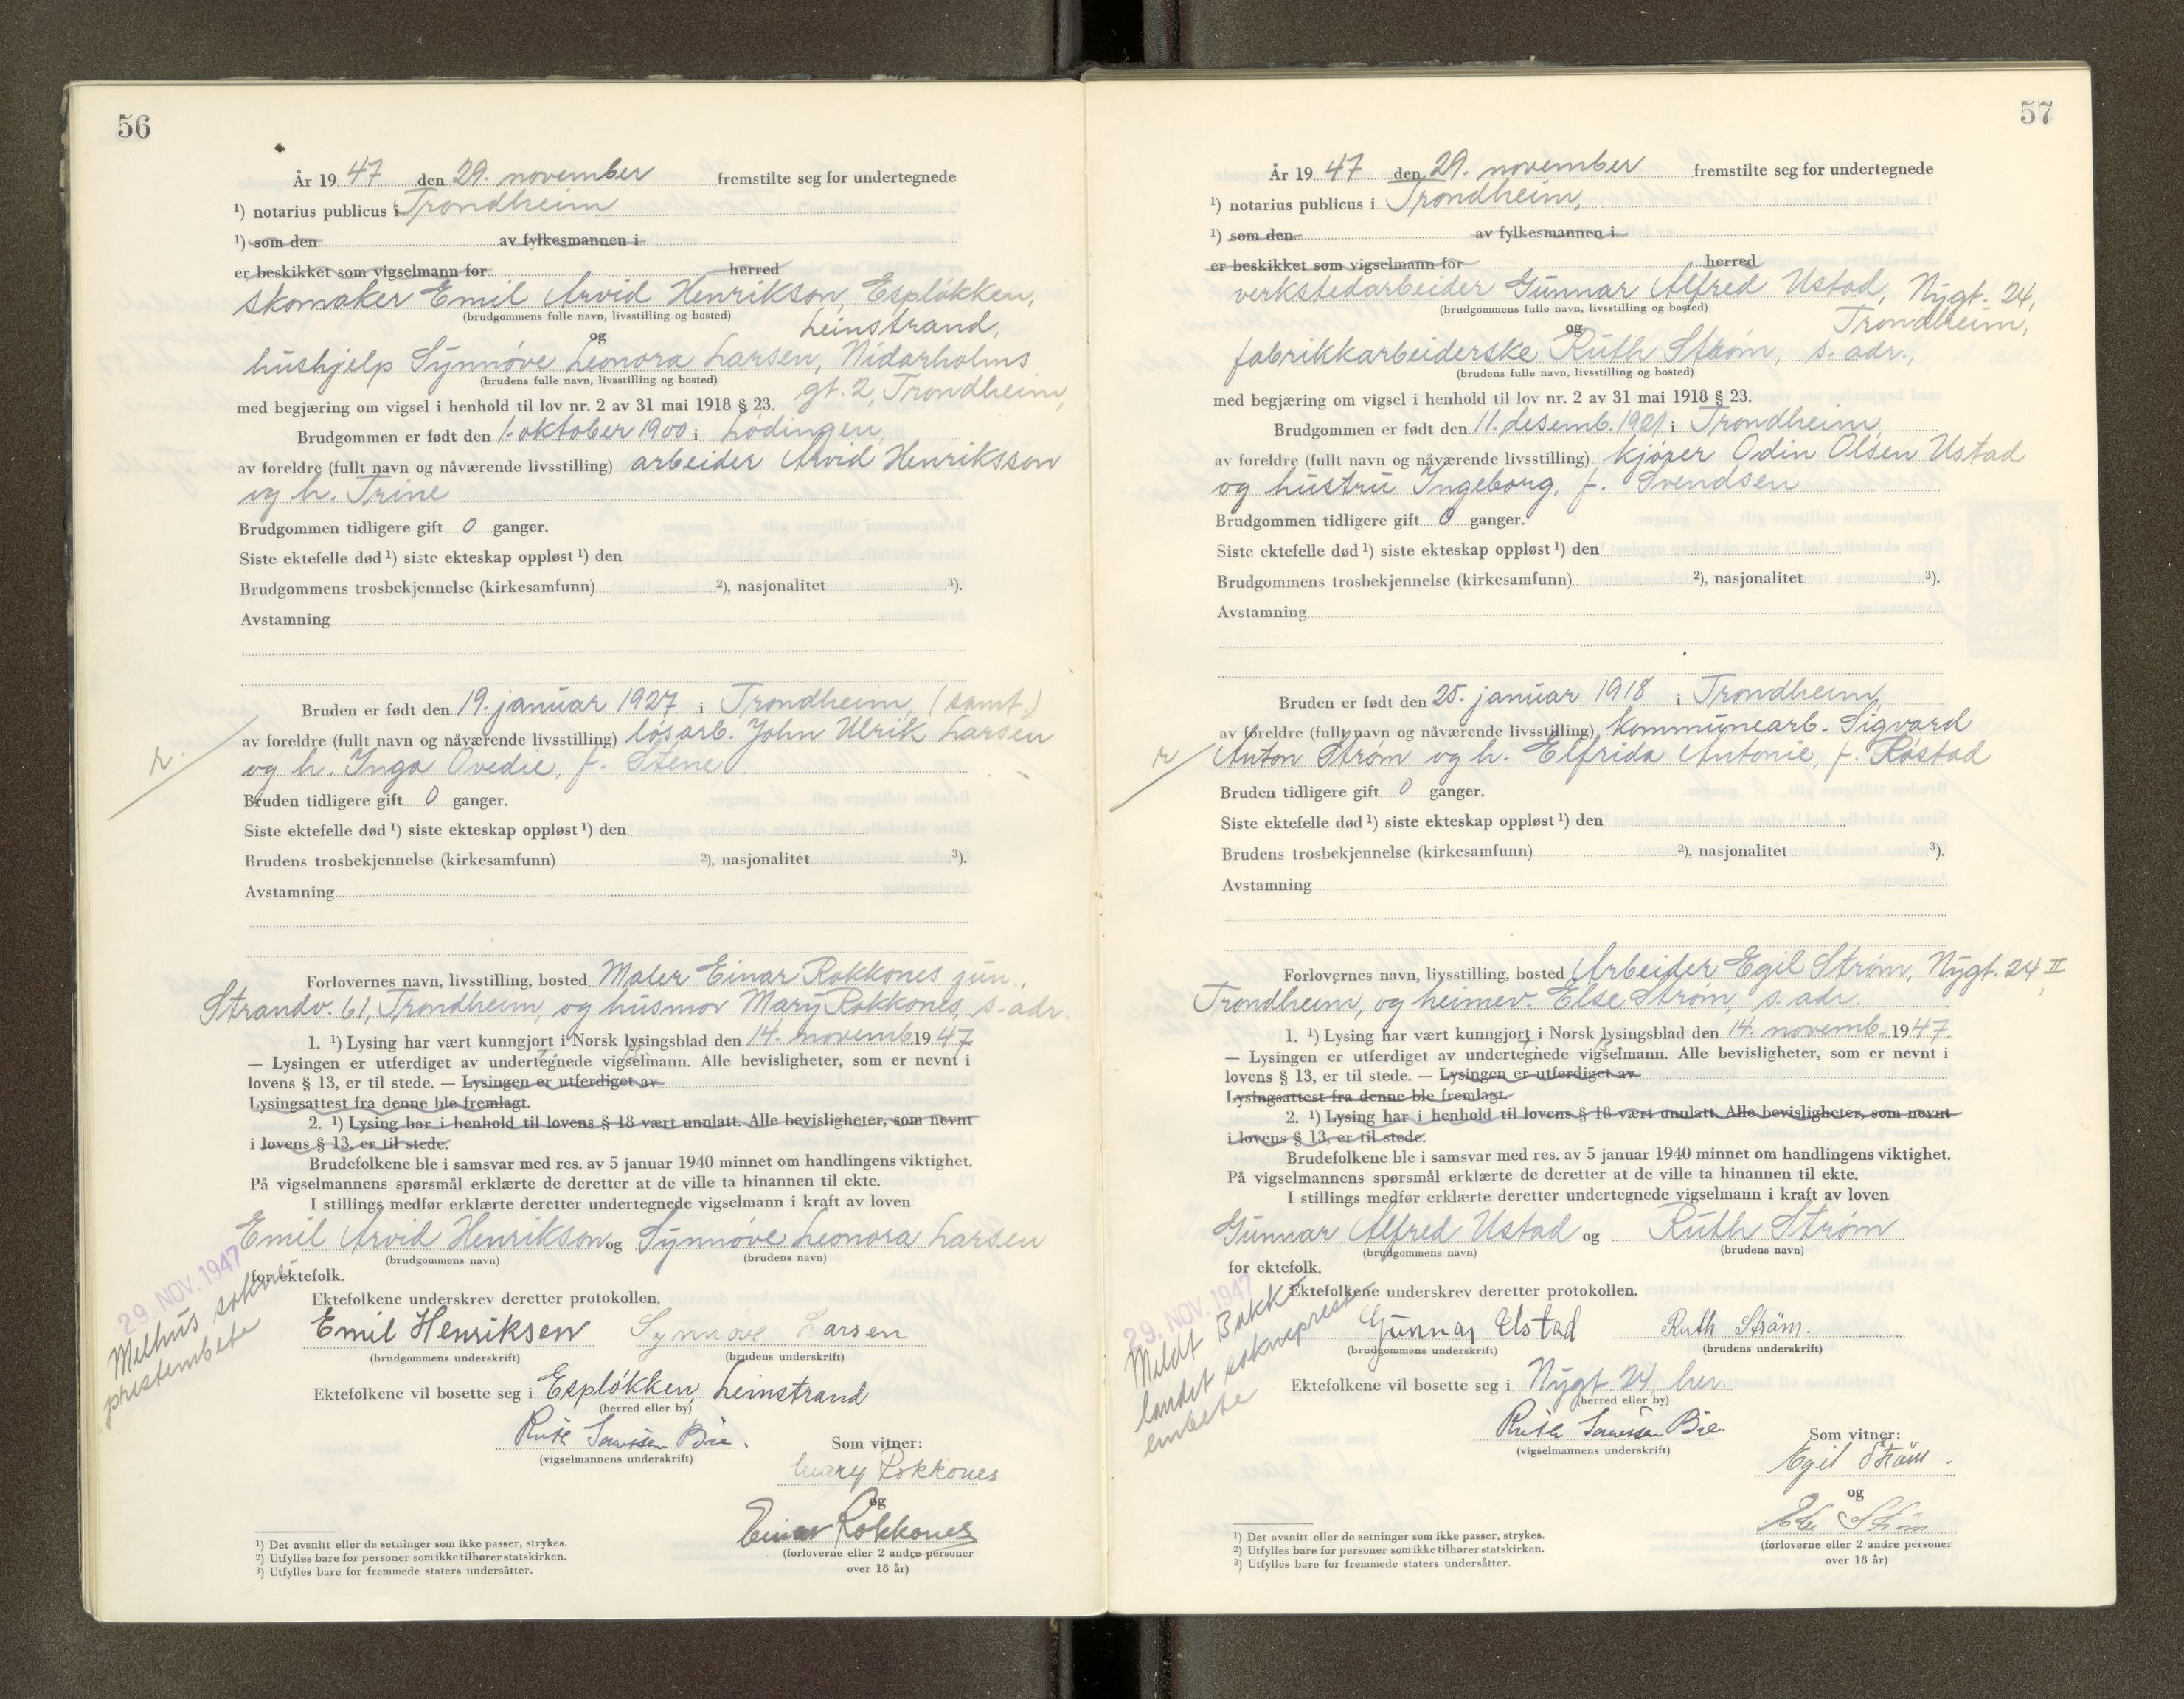 56
År 19 47 den 29. november fremstilte seg for undertegnede
¹) notarius publicus i Trondheim
¹) som den av fylkesmannen i
er beskikket som vigselmann for herred
skomaker Emil Arvid Henrikson, Espløkken,
(brudgommens fulle navn, livsstilling og bosted) Leinstrand,
og
hushjelp Synnøve Leonora Larsen, Nidarholms
(brudens fulle navn, livsstilling og bosted) gt. 2, Trondheim,
med begjæring om vigsel i henhold til lov nr. 2 av 31 mai 1918 § 23.
Brudgommen er født den 1. oktober 1900 i Lødingen,
av foreldre (fullt navn og nåværende livsstilling) arbeider Arvid Henriksson
og h. Trine
Brudgommen tidligere gift 0 ganger.
Siste ektefelle død ¹) siste ekteskap oppløst ¹) den
Brudgommens trosbekjennelse (kirkesamfunn) ²), nasjonalitet ³).
Avstamning
Bruden er født den 19. januar 1927 i Trondheim, (samt.)
av foreldre (fullt navn og nåværende livsstilling) løsarb. John Ulrik Larsen
r. og h. Inga Ovedie, f. Stene
Bruden tidligere gift 0 ganger.
Siste ektefelle død ¹) siste ekteskap oppløst ¹) den
Brudens trosbekjennelse (kirkesamfunn) ²), nasjonalitet ³).
Avstamning
Forlovernes navn, livsstilling, bosted Maler Einar Rokkones jun.,
Strandv. 61, Trondheim, og husmor Mary Rokkones, s. adr.
1. ¹) Lysing har vært kunngjort i Norsk lysingsblad den 14. novemb. 1947
— Lysingen er utferdiget av undertegnede vigselmann. Alle bevisligheter, som er nevnt i
lovens § 13, er til stede. — Lysingen er utferdiget av
Lysingsattest fra denne ble fremlagt.
2. ¹) Lysing har i henhold til lovens § 18 vært unnlatt. Alle bevisligheter, som nevnt
i lovens § 13, er til stede.
Brudefolkene ble i samsvar med res. av 5 januar 1940 minnet om handlingens viktighet.
På vigselmannens spørsmål erklærte de deretter at de ville ta hinannen til ekte.
I stillings medfør erklærte deretter undertegnede vigselmann i kraft av loven
Emil Arvid Henrikson og Synnøve Leonora Larsen
(brudgommens navn) (brudens navn)
for ektefolk.
29. NOV. 1947
Melhus sokne
prestembete
Ektefolkene underskrev deretter protokollen.
Emil Henriksen Synnøve Larsen
(brudgommens underskrift) (brudens underskrift)
Ektefolkene vil bosette seg i Espløkken, Leinstrand
(herred eller by)
Ruth Bie.
(vigselmannens underskrift)
Som vitner:
Mary Rokkones
og
Einar Rokkones
(forloverne eller 2 andre personer
over 18 år)
¹) Det avsnitt eller de setninger som ikke passer, strykes.
²) Utfylles bare for personer som ikke tilhører statskirken.
³) Utfylles bare for fremmede staters undersåtter.
57
År 19 47 den 29. november fremstilte seg for undertegnede
¹) notarius publicus i Trondheim,
¹) som den av fylkesmannen i
er beskikket som vigselmann for herred
verkstedarbeider Gunnar Alfred Ustad, Nygt. 24,
(brudgommens fulle navn, livsstilling og bosted) Trondheim,
og
fabrikkarbeiderske Ruth Strøm, s. adr.,
(brudens fulle navn, livsstilling og bosted)
med begjæring om vigsel i henhold til lov nr. 2 av 31 mai 1918 § 23.
Brudgommen er født den 11. desemb. 1921 i Trondheim,
av foreldre (fullt navn og nåværende livsstilling) kjører Odin Olsen Ustad
og hustru Ingeborg, f. Svendsen
Brudgommen tidligere gift 0 ganger.
Siste ektefelle død ¹) siste ekteskap oppløst ¹) den
Brudgommens trosbekjennelse (kirkesamfunn) ²), nasjonalitet ³).
Avstamning
Bruden er født den 25. januar 1918 i Trondheim,
av foreldre (fullt navn og nåværende livsstilling) kommunearb. Sigvard
r Anton Strøm og h. Elfrida Antonie, f. Røstad
Bruden tidligere gift 0 ganger.
Siste ektefelle død ¹) siste ekteskap oppløst ¹) den
Brudens trosbekjennelse (kirkesamfunn) ²), nasjonalitet ³).
Avstamning
Forlovernes navn, livsstilling, bosted Arbeider Egil Strøm, Nygt. 24 II
Trondheim, og heimev. Else Strøm, s. adr.
1. ¹) Lysing har vært kunngjort i Norsk lysingsblad den 14. novemb. 1947
— Lysingen er utferdiget av undertegnede vigselmann. Alle bevisligheter, som er nevnt i
lovens § 13, er til stede. — Lysingen er utferdiget av
Lysingsattest fra denne ble fremlagt.
2. ¹) Lysing har i henhold til lovens § 18 vært unnlatt. Alle bevisligheter, som nevnt
i lovens § 13, er til stede.
Brudefolkene ble i samsvar med res. av 5 januar 1940 minnet om handlingens viktighet.
På vigselmannens spørsmål erklærte de deretter at de ville ta hinannen til ekte.
I stillings medfør erklærte deretter undertegnede vigselmann i kraft av loven
Gunnar Alfred Ustad og Ruth Strøm
(brudgommens navn) (brudens navn)
for ektefolk.
29. NOV. 1947
Meldt Bakk
landet sokneprest
embete
Ektefolkene underskrev deretter protokollen.
Gunnar Ustad Ruth Strøm.
(brudgommens underskrift) (brudens underskrift)
Ektefolkene vil bosette seg i Nygt. 24, her.
(herred eller by)
Ruth Bie.
(vigselmannens underskrift)
Som vitner:
Egil Strøm.
og
Else Strøm
(forloverne eller 2 andre personer
over 18 år)
¹) Det avsnitt eller de setninger som ikke passer, strykes.
²) Utfylles bare for personer som ikke tilhører statskirken.
³) Utfylles bare for fremmede staters undersåtter.